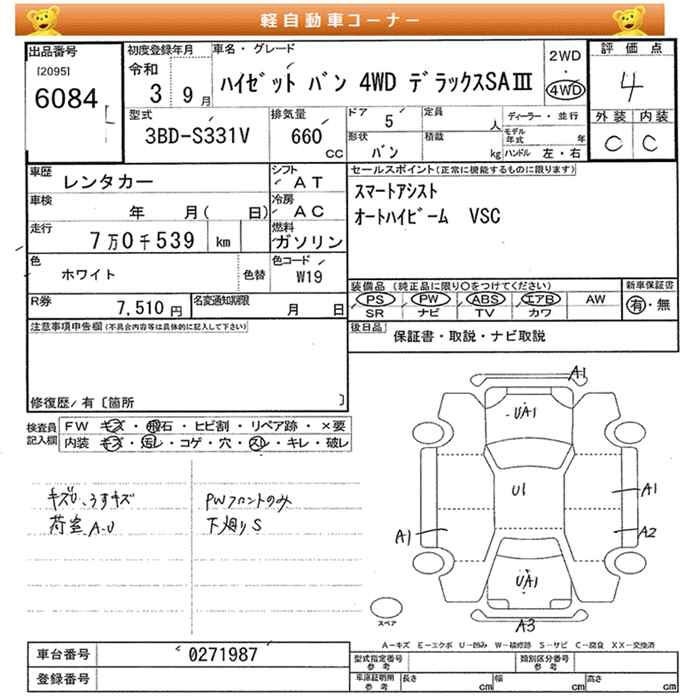 軽自動車コーナー
出品番号
[2095]
6084
初度登録年月
令和
3 9月
車名・グレード
ハイゼット バン 4WD デラックスSAⅢ
2WD
・
4WD
評価点
4
外装 内装
C C
型式
3BD-S331V
排気量
660
CC
ドア
5
形状
バン
定員
人
積載
kg
ディーラー・並行
モデル年式 年
ハンドル 左・右
車歴
レンタカー
シフト
AT
車検
年 月( 日)
冷房
AC
走行
7万0千539 km
燃料
ガソリン
色
ホワイト
色替
色コード
W19
R券
7,510円
名変通知期限
月 日
セールスポイント(正常に機能するものに限ります)
スマートアシスト
オートハイビーム VSC
装備品(純正品に限り○をつけてください)
PS PW ABS エアB AW
SR ナビ TV カワ
新車保証書
有・無
後日品
保証書・取説・ナビ取説
注意事項申告欄(不具合内容等は具体的に記入して下さい)
修復歴/有〔箇所 〕
検査員記入欄
FW キズ・飛石・ヒビ割・リペア跡・×要
内装 キズ・汚レ・コゲ・穴・スレ・キレ・破レ
キズU、うすキズ
荷室 A-U
PWフロントのみ
下廻りS
A1
UA1
U1
A1
A1
A2
UA1
A3
スペア
A-キズ E-エクボ U-凹み W-補修跡 S-サビ C-腐食 XX-交換済
車台番号
0271987
登録番号
型式指定番号参考
類別区分番号参考
車庫証明用参考
長さ cm
幅 cm
高さ cm